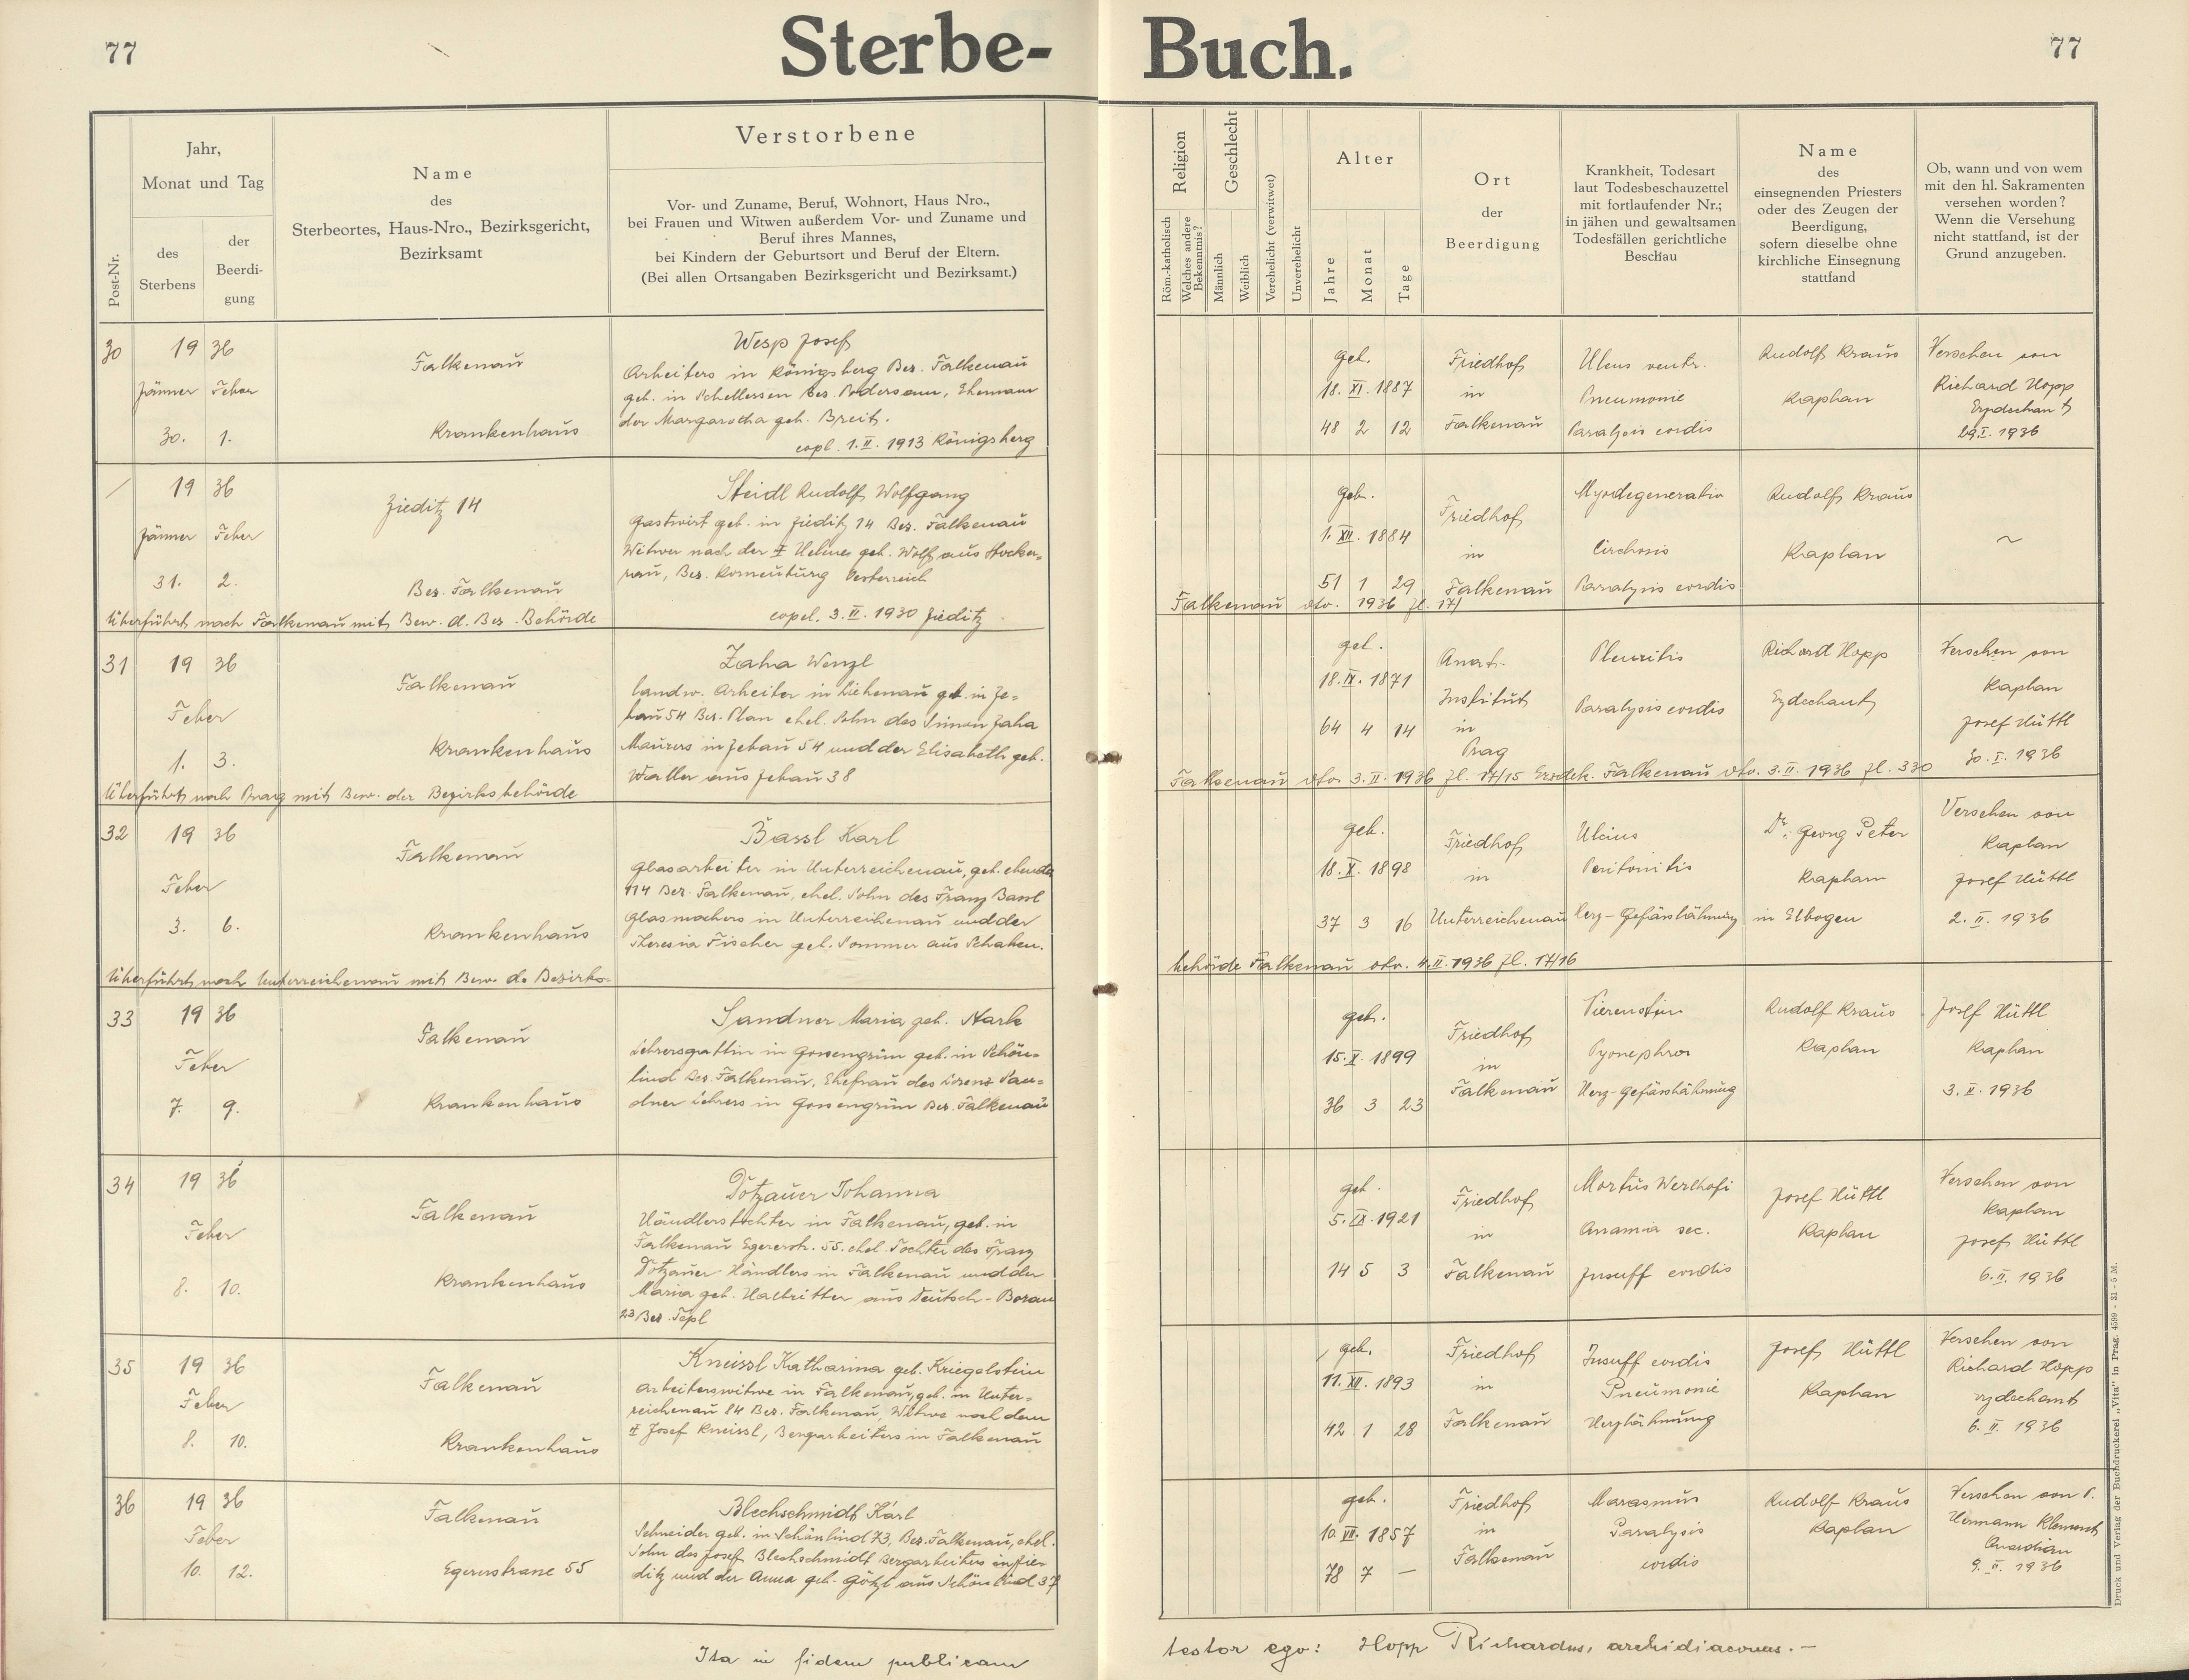 77
Sterbe-
Buch.
77
Post-Nr.
Jahr,
Monat und Tag
des
Sterbens
der
Beerdi-
gung
Name
des
Sterbeortes, Haus-Nro., Bezirksgericht,
Bezirksamt
Verstorbene
Vor- und Zuname, Beruf, Wohnort, Haus Nro.,
bei Frauen und Witwen außerdem Vor- und Zuname und
Beruf ihres Mannes,
bei Kindern der Geburtsort und Beruf der Eltern.
(Bei allen Ortsangaben Bezirksgericht und Bezirksamt.)
Religion
Röm.-katholisch
Welches andere
Bekenntnis?
Geschlecht
Männlich
Weiblich
Verehelicht (verwitwet)
Unverehelicht
Alter
Jahre
Monat
Tage
Ort
der
Beerdigung
Krankheit, Todesart
laut Todesbeschauzettel
mit fortlaufender Nr.;
in jähen und gewaltsamen
Todesfällen gerichtliche
Beschau
Name
des
einsegnenden Priesters
oder des Zeugen der
Beerdigung,
sofern dieselbe ohne
kirchliche Einsegnung
stattfand
Ob, wann und von wem
mit den hl. Sakramenten
versehen worden?
Wenn die Versehung
nicht stattfand, ist der
Grund anzugeben.
30
19 36
Jänner Feber
30. 1.
Falkenau
Krankenhaus
Wesp Josef
Arbeiters in Königsberg Bez. Falkenau
geb. in Schellesen Bez. Podersam, Ehemann
der Margaretha geb. Breit.
copl. 1. II. 1913 Königsberg
geb.
18. XI. 1887
48 2 12
Friedhof
in
Falkenau
Ulcus ventr.
Pneumonie
Paralysis cordis
Rudolf Kraus
Kaplan
Versehen von
Richard Hopp
Erzdechant
29. I. 1936
19 36
Jänner Feber
31. 2.
Zieditz 14
Bez. Falkenau
Steidl Rudolf Wolfgang
Gastwirt geb. in Zieditz 14 Bez. Falkenau
Witwer nach der I Helene geb. Wolf aus Stocker-
nau, Bez. Korneuburg Oesterreich
copul. 3. II. 1930 Zieditz
geb.
1. XII. 1884
51 1 29
Friedhof
in
Falkenau
Myodegeneratio
Cirrhosis
Paralysis cordis
Rudolf Kraus
Kaplan
~
Überführt nach Falkenau mit Bew. d. Bez. Behörde
Falkenau dto. 1936 Zl. 17/
31
19 36
Feber
1. 3.
Falkenau
Krankenhaus
Zaha Wenzl
landw. Arbeiter in Liebenau geb. in Ze-
bau 54 Bez. Plan ehel. Sohn des Simon Zaha
Maurers in Zebau 54 und der Elisabeth geb.
Waller aus Zebau 38
geb.
18. IX. 1871
64 4 14
Anat.
Institut
in
Prag
Pleuritis
Paralysis cordis
Richard Hopp
Erzdechant
Versehen von
Kaplan
Josef Hüttl
30. I. 1936
Überführt nach Prag mit Bew. der Bezirksbehörde
Falkenau dto. 3. II. 1936 Zl. 17/15 Erzdek. Falkenau dto. 3. II. 1936 Zl. 330
32
19 36
Feber
3. 6.
Falkenau
Krankenhaus
Bassl Karl
Glasarbeiter in Unterreichenau, geb. ebenda
114 Bez. Falkenau, ehel. Sohn des Franz Bassl
Glasmachers in Unterreichenau und der
Theresia Fischer geb. Sommer aus Schaben.
geb.
18. X. 1898
37 3 16
Friedhof
in
Unterreichenau
Ulcus
Peritonitis
Herz-Gefässlähmung
Dr. Georg Peter
Kaplan
in Elbogen
Versehen von
Kaplan
Josef Hüttl
2. II. 1936
Überführt nach Unterreichenau mit Bew. d. Bezirks-
behörde Falkenau dto. 4. II. 1936 Zl. 17/16
33
19 36
Feber
7. 9.
Falkenau
Krankenhaus
Sandner Maria geb. Stark
Lehrersgattin in Gossengrün geb. in Schön-
lind Bez. Falkenau, Ehefrau des Lorenz San-
dner Lehrers in Gossengrün Bez. Falkenau
geb.
15. X. 1899
36 3 23
Friedhof
in
Falkenau
Nierenstein
Pyonephros
Herz-Gefässlähmung
Rudolf Kraus
Kaplan
Josef Hüttl
Kaplan
3. II. 1936
34
19 36
Feber
8. 10.
Falkenau
Krankenhaus
Dotzauer Johanna
Händlerstochter in Falkenau, geb. in
Falkenau Egererstr. 55. ehel. Tochter des Franz
Dotzauer Händlers in Falkenau und der
Maria geb. Halbritter aus Deutsch-Borau
23 Bez. Tepl
geb.
5. IX. 1921
14 5 3
Friedhof
in
Falkenau
Morbus Werlhofi
Anamia sec.
Insuff cordis
Josef Hüttl
Kaplan
Versehen von
Kaplan
Josef Hüttl
6. II. 1936
35
19 36
Feber
8. 10.
Falkenau
Krankenhaus
Kneissl Katharina geb. Kriegelstein
Arbeiterswitwe in Falkenau, geb. in Unter-
reichenau 84 Bez. Falkenau, Witwe nach dem
II Josef Kneissl, Bergarbeiters in Falkenau
geb.
11. XII. 1893
42 1 28
Friedhof
in
Falkenau
Insuff cordis
Pneumonie
Herzlähmung
Josef Hüttl
Kaplan
Versehen von
Richard Hopp
Erzdechant
6. II. 1936
36
19 36
Feber
10. 12.
Falkenau
Egererstrasse 55
Blechschmidt Karl
Schneider geb. in Schönlind 73, Bez. Falkenau, ehel.
Sohn des Josef Blechschmidt Bergarbeiters in Zie-
ditz und der Anna geb. Götzl aus Schönlind 37
geb.
10. VII. 1857
78 7 —
Friedhof
in
Falkenau
Marasmus
Paralysis
cordis
Rudolf Kraus
Kaplan
Versehen von P.
Hermann Klement
Quardian
9. II. 1936
Ita in fidem publicam
testor ego: Hopp Richardus, archidiaconus. —
Druck und Verlag der Buchdruckerei „Vita" in Prag. 4599 - 31 - 5 M.